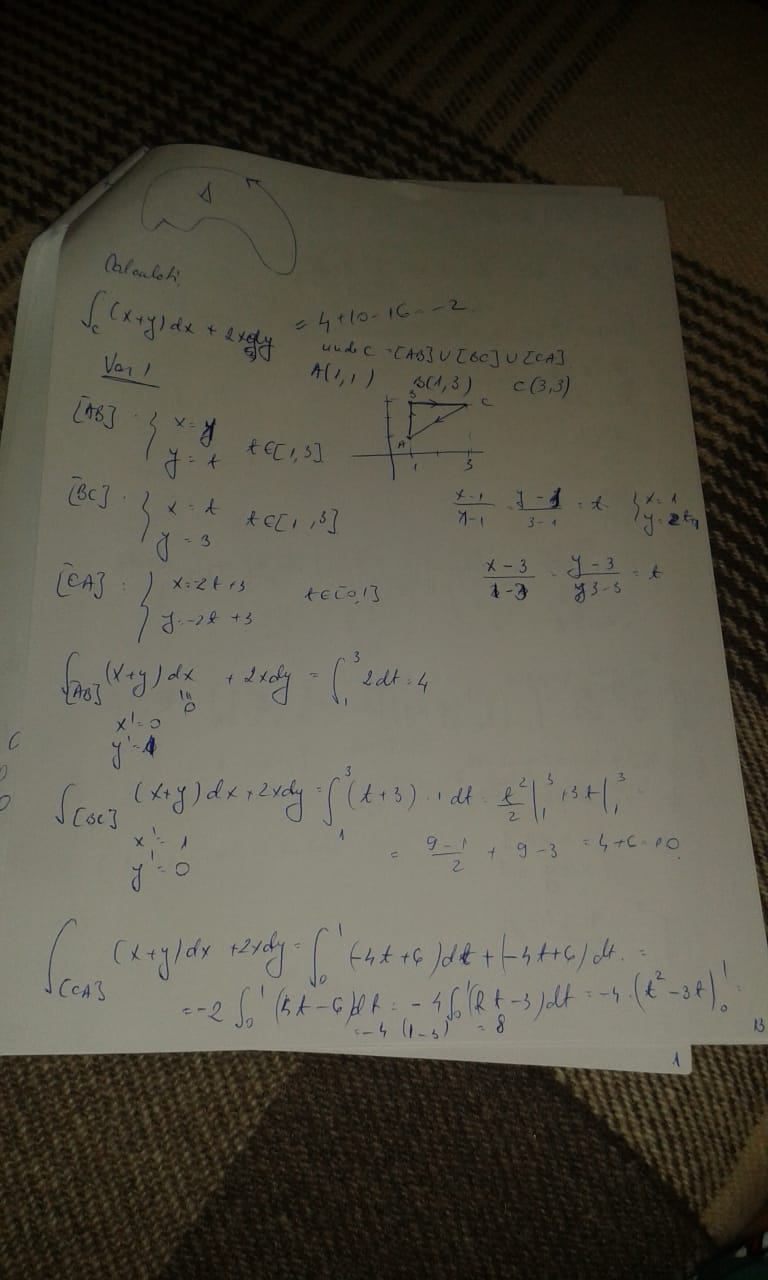 Δ
Calculati
∫c (x+y)dx + 2xdy = 4+10-16=-2
unde C = [AB]∪[BC]∪[CA]
Var 1
A(1,1) B(1,3) C(3,3)
[AB]: { x= y = t t∈[1,3]
B C
A
1 3
[BC]: { x = t y = 3 t∈[1,3]
x-1/1-1 = y-1/3-1 = t { x=1 y=2t+1
[CA]: { x=-2t+3 y=-2t+3 t∈[0,1]
x-3/1-3 = y-3 = t
∫[AB] (x+y)dx + 2xdy = ∫₁³ 2dt=4
0
x'=0
y'=1
∫[BC] (x+y)dx+2xdy=∫₁³(t+3)·1dt = t²/2|₁³+3t|₁³
x'=1
y'=0
= 9-1/2 + 9-3 = 4+6=10
∫[CA] (x+y)dx+2xdy=∫₀¹(-4t+6)dt+(-4t+6)dt =
=-2∫₀¹(4t-6)dt = -4∫₀¹(2t-3)dt=-4·(t²-3t)₀¹=
=-4(1-3) =8
13
1